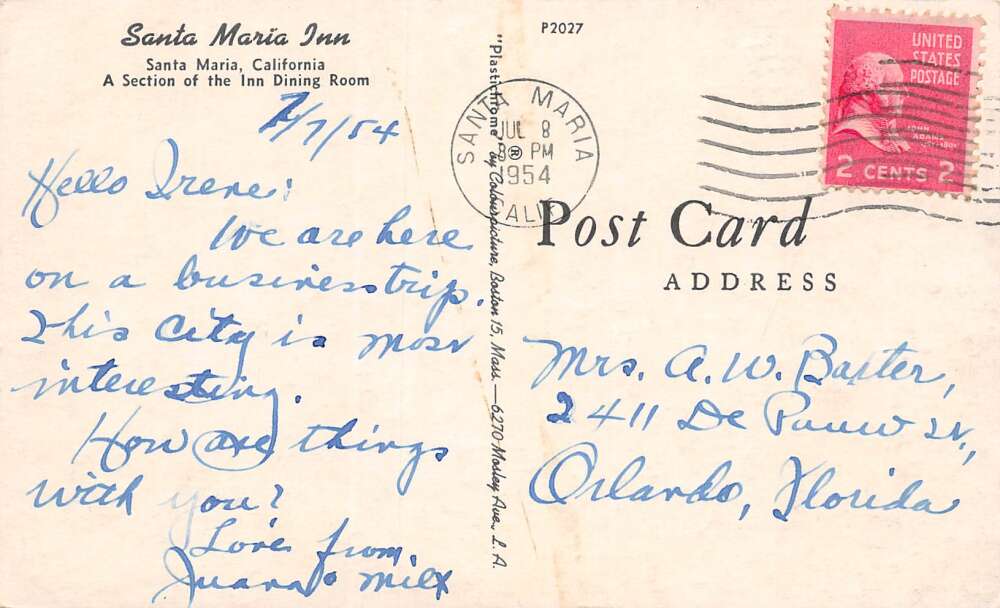 Santa Maria Inn
Santa Maria, California
A Section of the Inn Dining Room
7/7/54
Hello Irene:
We are here
on a business trip.
This City is most
interesting.
How are things
with you?
Love from,
Juana &
"Plastichrome"® by Colourpicture, Boston 15, Mass.—6270 Mosley Ave., L.A.
P2027
SANTA MARIA
JUL 8
PM
1954
CALIF
UNITED
STATES
POSTAGE
JOHN
ADAMS
2 CENTS 2
Post Card
ADDRESS
Mrs. A. W. Baxter,
2411 De Pauw
Orlando, Florida